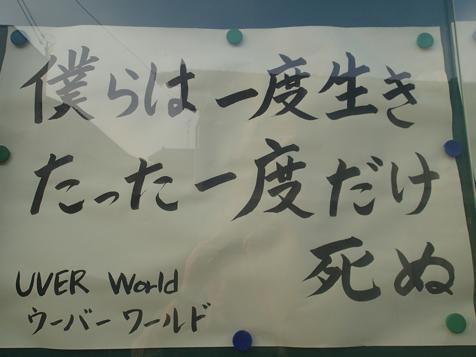 僕らは一度生き
たった一度だけ
死ぬ
UVER World
ウーバーワールド